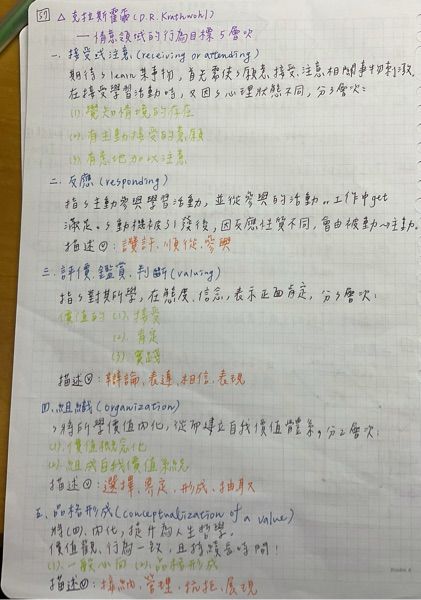 57
△ 克拉斯霍爾 (D.R. Krathwohl)
— 情意領域的行為目標 5 層次
一、接受或注意 (receiving or attending)
期待 S learn 某事物,首先需使 S 願意接受、注意相關事物刺激。
在接受學習活動時,又因 S 心理狀態不同,分 3 層次:
(1). 覺知情境的存在
(2). 有主動接受的意願
(3). 有意地加以注意
二、反應 (responding)
指 S 主動參與學習活動,並從參與的活動 or 工作中 get
滿足。S 動機被引發後,因反應性質不同,會由被動→主動。
描述 Ⓥ:讚許、順從、參與
三、評價、鑑賞、判斷 (valuing)
指 S 對其所學,在態度、信念,表示正面肯定,分 3 層次:
價值的 (1). 接受
(2). 肯定
(3) 實踐
描述 Ⓥ:辯論、表達、相信、表現
四、組織 (organization)
S 將所學價值內化,從而建立自我價值體系,分 2 層次:
(1). 價值概念化
(2). 組成自我價值系統
描述 Ⓥ:選擇、界定、形成、抽取
五、品格形成 (conceptualization of a value)
將(四)內化,提升為人生哲學,
價值觀、行為一致,且持續長時間!
(1). 一般化 (2). 品格形成
描述 Ⓥ:接納、管理、抗拒、展現